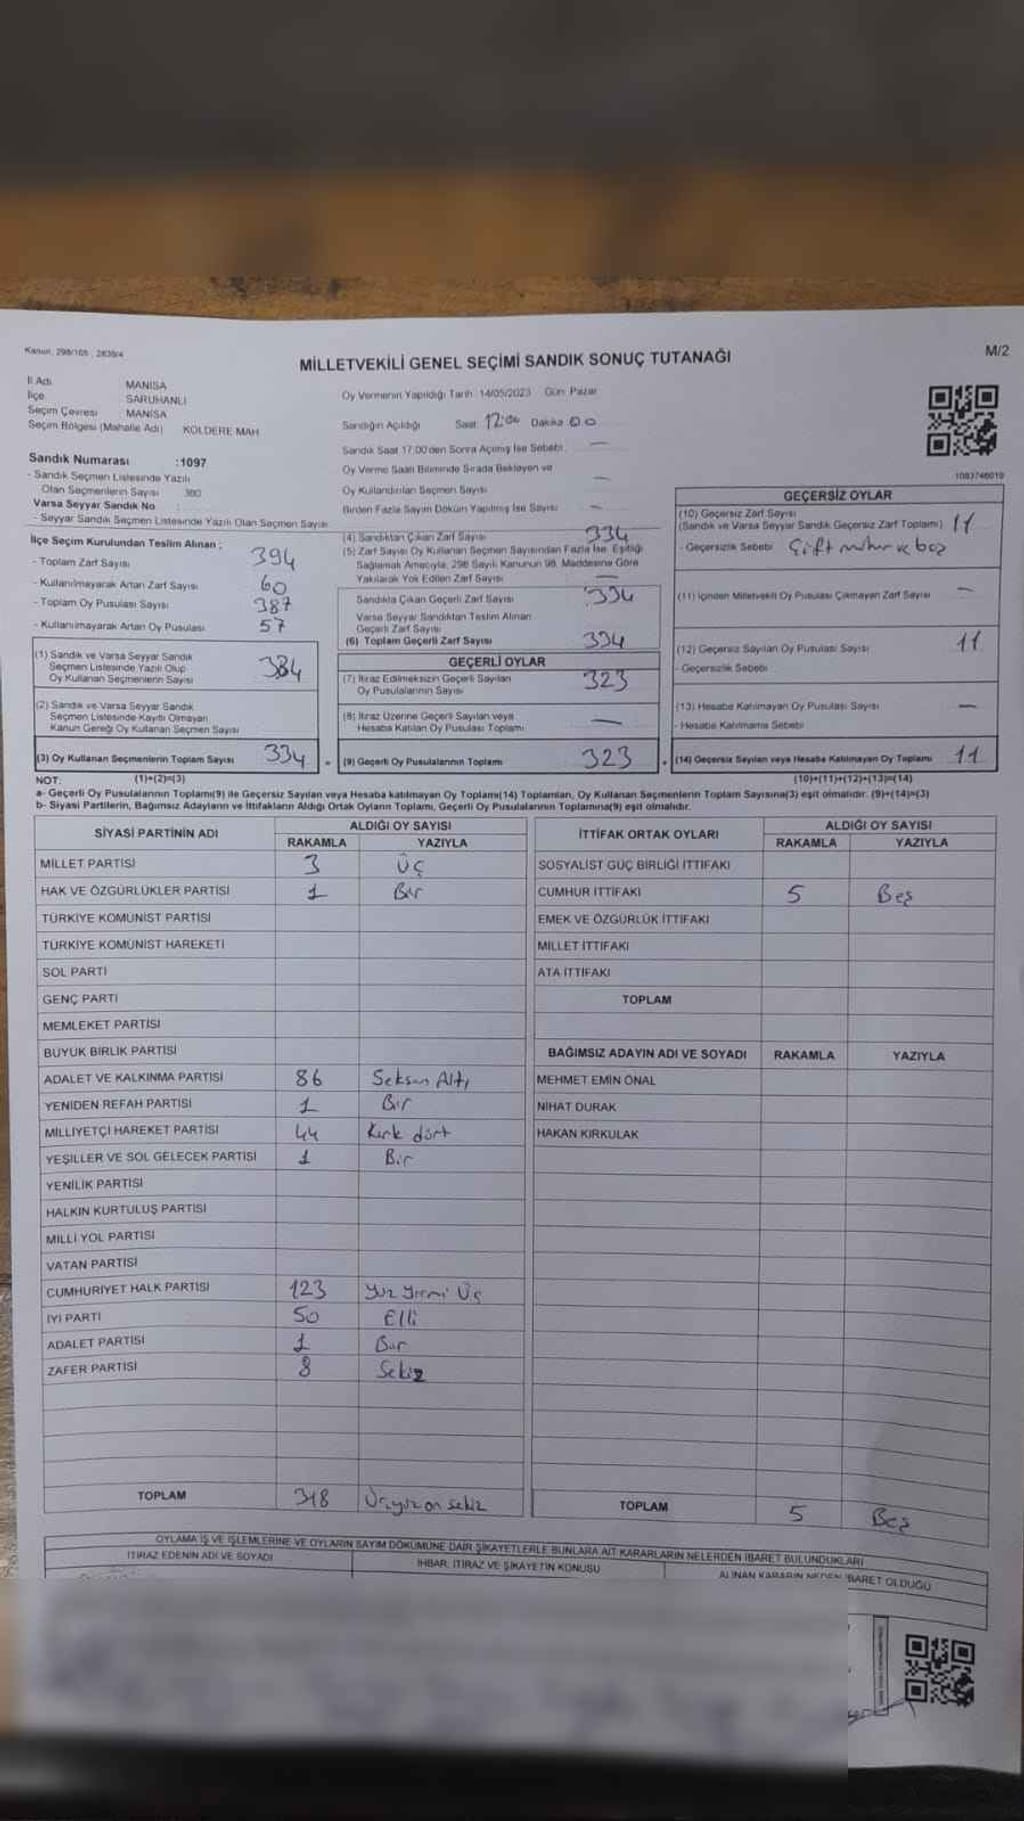 Kanun: 298/105 ; 2839/4
MİLLETVEKİLİ GENEL SEÇİMİ SANDIK SONUÇ TUTANAĞI
M/2
İl Adı MANİSA
İlçe SARUHANLI
Seçim Çevresi MANİSA
Seçim Bölgesi (Mahalle Adı) KOLDERE MAH
Sandık Numarası :1097
- Sandık Seçmen Listesinde Yazılı
Olan Seçmenlerin Sayısı 380
Varsa Seyyar Sandık No :
- Seyyar Sandık Seçmen Listesinde Yazılı Olan Seçmen Sayısı
Oy Vermenin Yapıldığı Tarih: 14/05/2023 Gün: Pazar
Sandığın Açıldığı Saat: 17:00 Dakika 00
Sandık Saat 17:00'den Sonra Açılmış İse Sebebi: —
Oy Verme Saati Bitiminde Sırada Bekleyen ve
Oy Kullandırılan Seçmen Sayısı —
Birden Fazla Sayım Döküm Yapılmış İse Sayısı —
1093746019
İlçe Seçim Kurulundan Teslim Alınan ;
- Toplam Zarf Sayısı 394
- Kullanılmayarak Artan Zarf Sayısı 60
- Toplam Oy Pusulası Sayısı 387
- Kullanılmayarak Artan Oy Pusulası 57
(1) Sandık ve Varsa Seyyar Sandık
Seçmen Listesinde Yazılı Olup
Oy Kullanan Seçmenlerin Sayısı 334
(2) Sandık ve Varsa Seyyar Sandık
Seçmen Listesinde Kayıtlı Olmayan
Kanun Gereği Oy Kullanan Seçmen Sayısı
(3) Oy Kullanan Seçmenlerin Toplam Sayısı 334
(4) Sandıktan Çıkan Zarf Sayısı 334
(5) Zarf Sayısı Oy Kullanan Seçmen Sayısından Fazla İse, Eşitliği
Sağlamak Amacıyla, 298 Sayılı Kanunun 98. Maddesine Göre
Yakılarak Yok Edilen Zarf Sayısı —
Sandıkta Çıkan Geçerli Zarf Sayısı 334
Varsa Seyyar Sandıktan Teslim Alınan
Geçerli Zarf Sayısı
(6) Toplam Geçerli Zarf Sayısı 334
GEÇERLİ OYLAR
(7) İtiraz Edilmeksizin Geçerli Sayılan
Oy Pusulalarının Sayısı 323
(8) İtiraz Üzerine Geçerli Sayılan veya
Hesaba Katılan Oy Pusulası Toplamı —
(9) Geçerli Oy Pusulalarının Toplamı 323
GEÇERSİZ OYLAR
(10) Geçersiz Zarf Sayısı
(Sandık ve Varsa Seyyar Sandık Geçersiz Zarf Toplamı) 11
- Geçersizlik Sebebi Çift mühür ve boş
(11) İçinden Milletvekili Oy Pusulası Çıkmayan Zarf Sayısı —
(12) Geçersiz Sayılan Oy Pusulası Sayısı 11
- Geçersizlik Sebebi
(13) Hesaba Katılmayan Oy Pusulası Sayısı —
- Hesaba Katılmama Sebebi
(14) Geçersiz Sayılan veya Hesaba Katılmayan Oy Toplamı 11
NOT: (1)+(2)=(3) (10)+(11)+(12)+(13)=(14)
a- Geçerli Oy Pusulalarının Toplamı(9) ile Geçersiz Sayılan veya Hesaba katılmayan Oy Toplamı(14) Toplamları, Oy Kullanan Seçmenlerin Toplam Sayısına(3) eşit olmalıdır. (9)+(14)=(3)
b- Siyasi Partilerin, Bağımsız Adayların ve İttifakların Aldığı Ortak Oyların Toplamı, Geçerli Oy Pusulalarının Toplamına(9) eşit olmalıdır.
SİYASİ PARTİNİN ADI ALDIĞI OY SAYISI
RAKAMLA YAZIYLA
MİLLET PARTİSİ 3 Üç
HAK VE ÖZGÜRLÜKLER PARTİSİ 1 Bir
TÜRKİYE KOMÜNİST PARTİSİ
TÜRKİYE KOMÜNİST HAREKETİ
SOL PARTİ
GENÇ PARTİ
MEMLEKET PARTİSİ
BÜYÜK BİRLİK PARTİSİ
ADALET VE KALKINMA PARTİSİ 86 Seksen Altı
YENİDEN REFAH PARTİSİ 1 Bir
MİLLİYETÇİ HAREKET PARTİSİ 44 Kırk dört
YEŞİLLER VE SOL GELECEK PARTİSİ 1 Bir
YENİLİK PARTİSİ
HALKIN KURTULUŞ PARTİSİ
MİLLİ YOL PARTİSİ
VATAN PARTİSİ
CUMHURİYET HALK PARTİSİ 123 Yüz Yirmi Üç
İYİ PARTİ 50 Elli
ADALET PARTİSİ 1 Bir
ZAFER PARTİSİ 8 Sekiz
TOPLAM 318 Üçyüz on sekiz
İTTİFAK ORTAK OYLARI ALDIĞI OY SAYISI
RAKAMLA YAZIYLA
SOSYALİST GÜÇ BİRLİĞİ İTTİFAKI
CUMHUR İTTİFAKI 5 Beş
EMEK VE ÖZGÜRLÜK İTTİFAKI
MİLLET İTTİFAKI
ATA İTTİFAKI
TOPLAM
BAĞIMSIZ ADAYIN ADI VE SOYADI RAKAMLA YAZIYLA
MEHMET EMİN ÖNAL
NİHAT DURAK
HAKAN KIRKULAK
TOPLAM 5 Beş
OYLAMA İŞ VE İŞLEMLERİNE VE OYLARIN SAYIM DÖKÜMÜNE DAİR ŞİKAYETLERLE BUNLARA AİT KARARLARIN NELERDEN İBARET BULUNDUKLARI
İTİRAZ EDENİN ADI VE SOYADI İHBAR, İTİRAZ VE ŞİKAYETİN KONUSU ALINAN KARARIN NEDEN İBARET OLDUĞU